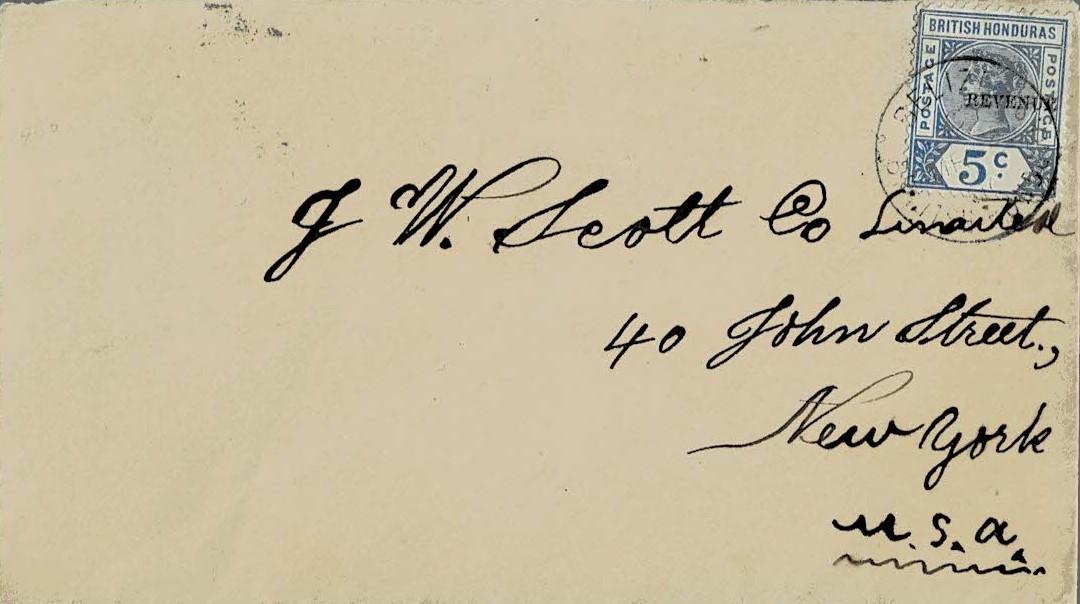 BRITISH HONDURAS
POSTAGE
POSTAGE
REVENUE
5c
J W. Scott Co Limited
40 John Street.,
New York
U.S.A.